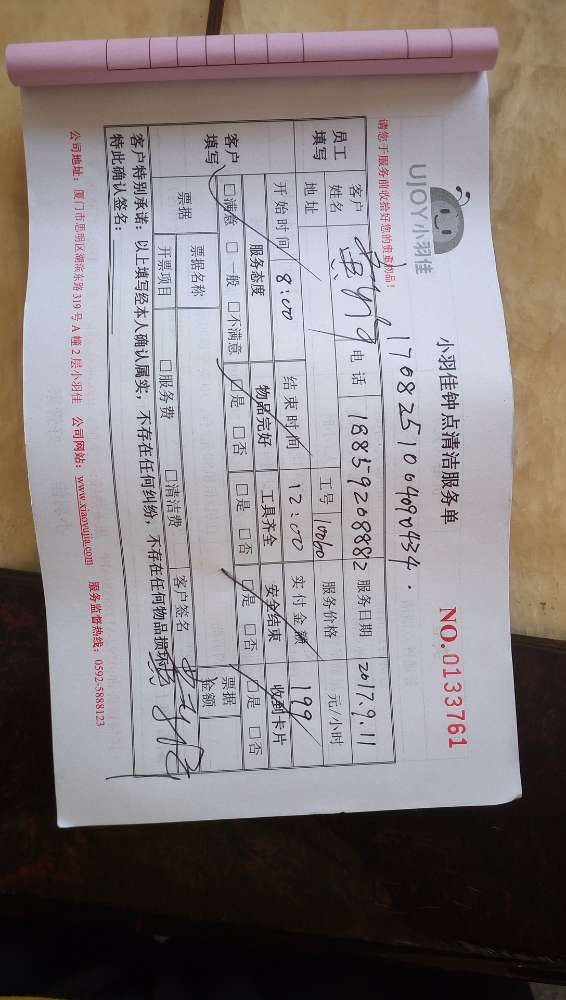 UJOY小羽佳
小羽佳钟点清洁服务单
NO.0133761
请您于服务前收拾好您的贵重物品!
1708251064090434.
员工填写 客户姓名 电话 18859208882 服务日期 2017.9.11
地址 工号 10060 服务价格 元/小时
开始时间 8:00 结束时间 12:00 实付金额 199
客户填写 服务态度 物品完好 工具齐全 安全结束 收到卡片
□满意 □一般 □不满意 □是 □否 □是 □否 □是 □否 □是 □否
票据 票据名称 票据金额
开票项目 □服务费 □清洁费 客户签名
客户特别承诺:以上填写经本人确认属实,不存在任何纠纷,不存在任何物品损坏
特此确认签名:
公司地址:厦门市思明区湖滨东路 319 号 A 幢 2 层小羽佳 公司网站:www.xiaoyujia.com 服务监督热线:0592-5888123